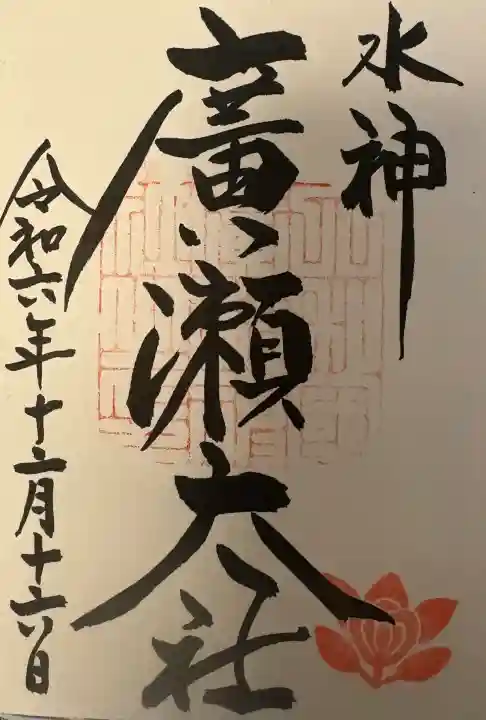 水神
廣瀬大社
令和六年十二月十六日